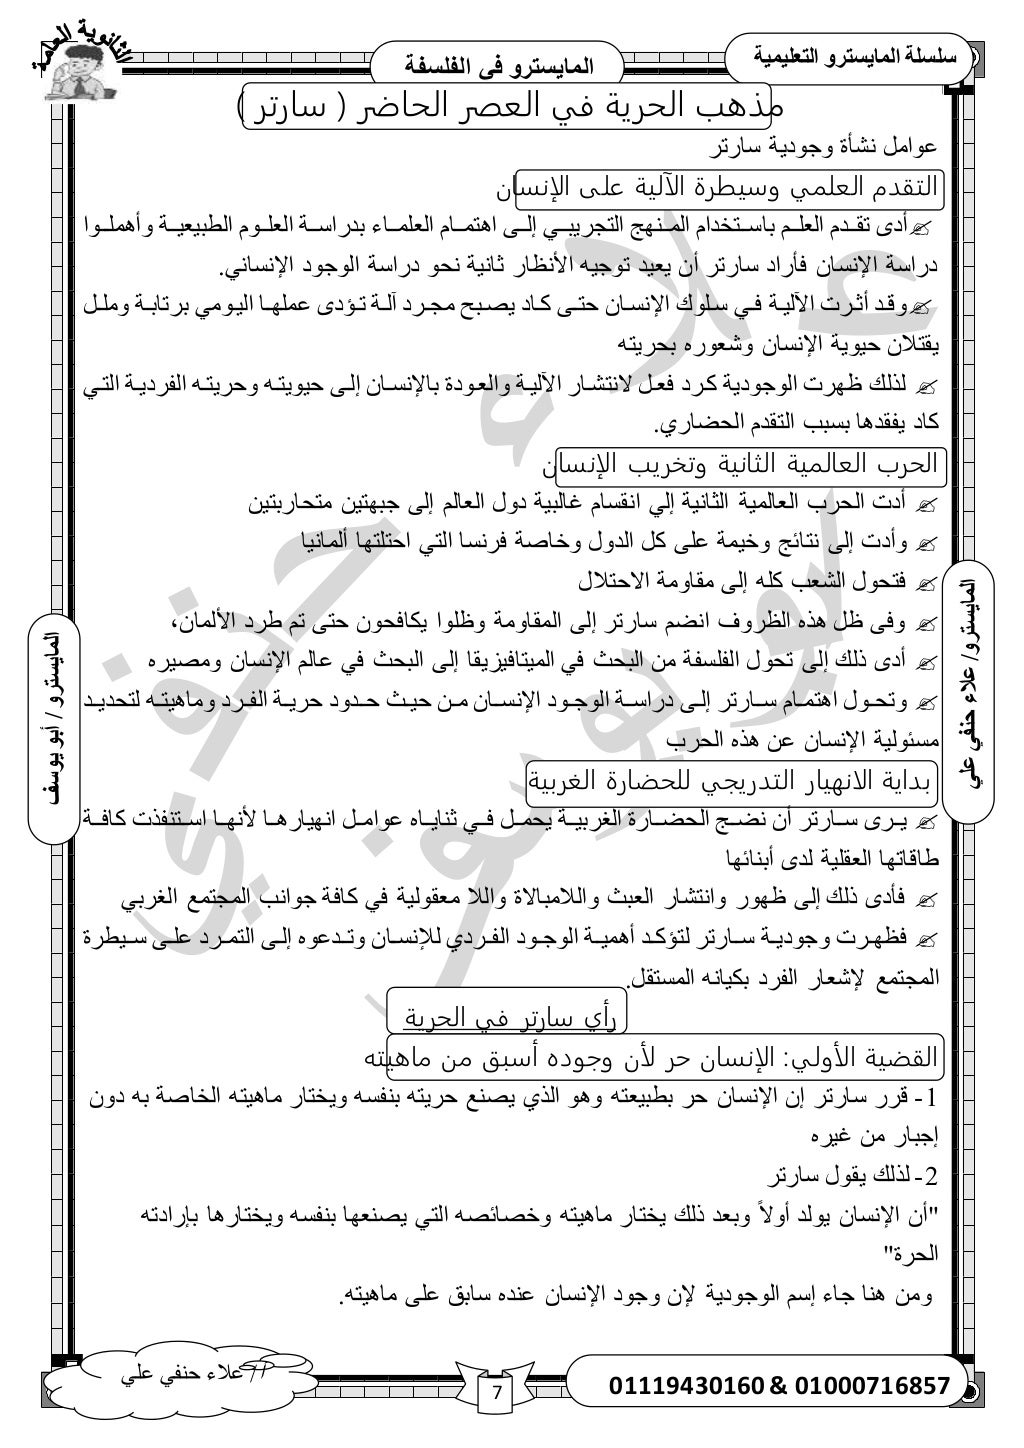 الثانوية العامة
المايسترو فى الفلسفة
سلسلة المايسترو التعليمية
مذهب الحرية في العصر الحاضر ( سارتر )
عوامل نشأة وجودية سارتر
التقدم العلمي وسيطرة الآلية على الإنسان
أدى تقدم العلم باستخدام المنهج التجريبي إلى اهتمام العلماء بدراسة العلوم الطبيعية وأهملوا
دراسة الإنسان فأراد سارتر أن يعيد توجيه الأنظار ثانية نحو دراسة الوجود الإنساني.
وقد أثرت الآلية في سلوك الإنسان حتى كاد يصبح مجرد آلة تؤدى عملها اليومي برتابة وملل
يقتلان حيوية الإنسان وشعوره بحريته
لذلك ظهرت الوجودية كرد فعل لانتشار الآلية والعودة بالإنسان إلى حيويته وحريته الفردية التي
كاد يفقدها بسبب التقدم الحضاري.
الحرب العالمية الثانية وتخريب الإنسان
أدت الحرب العالمية الثانية إلي انقسام غالبية دول العالم إلى جبهتين متحاربتين
وأدت إلى نتائج وخيمة على كل الدول وخاصة فرنسا التي احتلتها ألمانيا
فتحول الشعب كله إلى مقاومة الاحتلال
وفى ظل هذه الظروف انضم سارتر إلى المقاومة وظلوا يكافحون حتى تم طرد الألمان،
أدى ذلك إلى تحول الفلسفة من البحث في الميتافيزيقا إلى البحث في عالم الإنسان ومصيره
وتحول اهتمام سارتر إلى دراسة الوجود الإنسان من حيث حدود حرية الفرد وماهيته لتحديد
مسئولية الإنسان عن هذه الحرب
بداية الانهيار التدريجي للحضارة الغربية
يرى سارتر أن نضج الحضارة الغربية يحمل في ثناياه عوامل انهيارها لأنها استنفذت كافة
طاقاتها العقلية لدى أبنائها
فأدى ذلك إلى ظهور وانتشار العبث واللامبالاة واللا معقولية في كافة جوانب المجتمع الغربي
فظهرت وجودية سارتر لتؤكد أهمية الوجود الفردي للإنسان وتدعوه إلى التمرد على سيطرة
المجتمع لإشعار الفرد بكيانه المستقل.
رأي سارتر في الحرية
القضية الأولي: الإنسان حر لأن وجوده أسبق من ماهيته
1- قرر سارتر إن الإنسان حر بطبيعته وهو الذي يصنع حريته بنفسه ويختار ماهيته الخاصة به دون
إجبار من غيره
2- لذلك يقول سارتر
"أن الإنسان يولد أولاً وبعد ذلك يختار ماهيته وخصائصه التي يصنعها بنفسه ويختارها بإرادته
الحرة"
ومن هنا جاء إسم الوجودية لإن وجود الإنسان عنده سابق على ماهيته.
المايسترو/ علاء حنفي علي
المايسترو / أبو يوسف
علاء حنفي علي
أبو يوسف
أ/ علاء حنفي علي
7
01119430160 & 01000716857